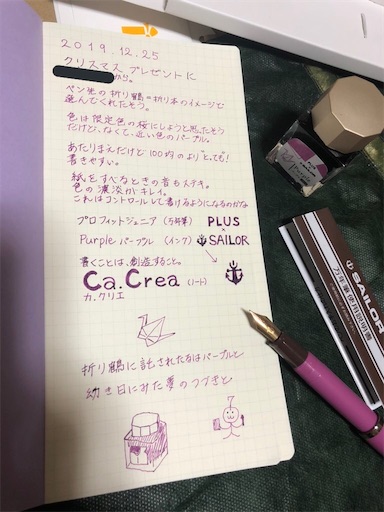 2019.12.25
クリスマスプレゼントに
から。
ペン先の折り鶴=折り本のイメージで
選んでくれたそう。
色は限定色の桜にしようと思ったそう
だけど、なくて、近い色のパープル。
あたりまえだけど100均のより、とっても!
書きやすい。
紙をすべるときの音もステキ。
色の濃淡がキレイ。
これはコントロールして書けるようになるのかな
プロフィットジュニア(万年筆) PLUS
Purple パープル (インク) × SAILOR
書くことは、創造すること。
Ca.Crea (ノート)
カ.クリエ
折り鶴に託されたるはパープルと
幼き日にみた夢のつづきと
Purple
SAILOR
万年筆使用説明書